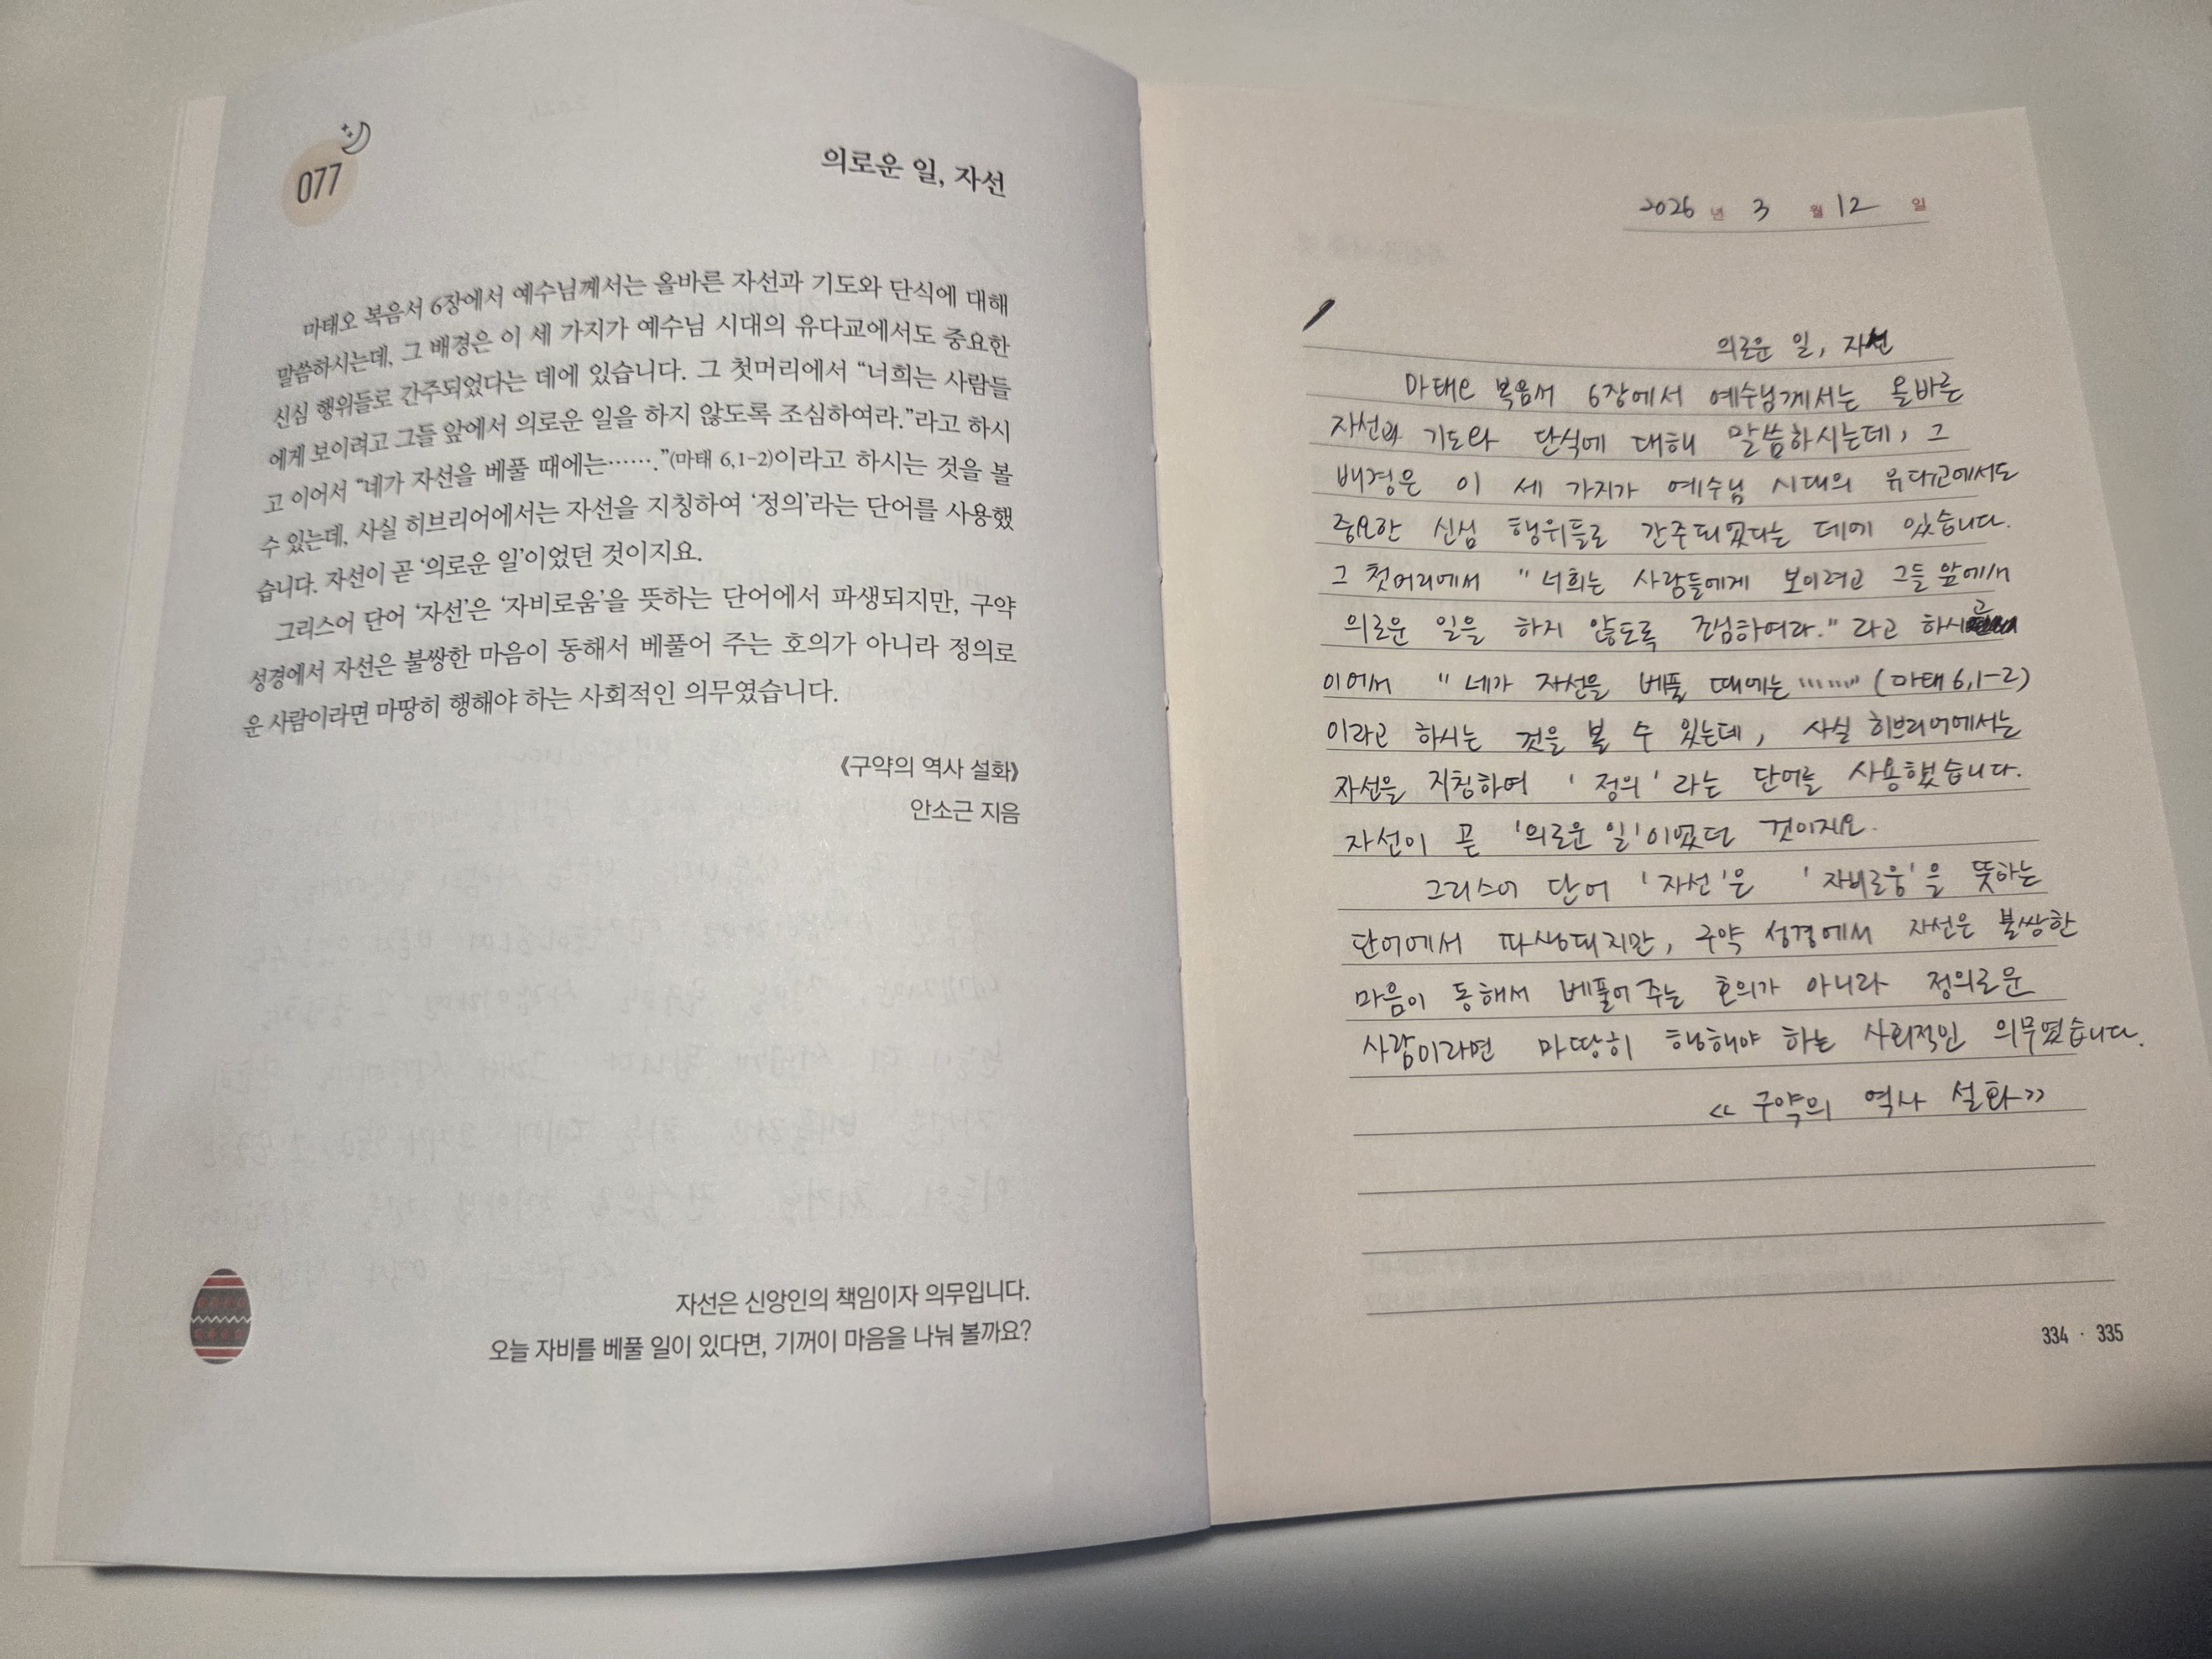 077
의로운 일, 자선
마태오 복음서 6장에서 예수님께서는 올바른 자선과 기도와 단식에 대해
말씀하시는데, 그 배경은 이 세 가지가 예수님 시대의 유다교에서도 중요한
신심 행위들로 간주되었다는 데에 있습니다. 그 첫머리에서 “너희는 사람들
에게 보이려고 그들 앞에서 의로운 일을 하지 않도록 조심하여라.”라고 하시
고 이어서 “네가 자선을 베풀 때에는…….”(마태 6,1-2)이라고 하시는 것을 볼
수 있는데, 사실 히브리어에서는 자선을 지칭하여 ‘정의’라는 단어를 사용했
습니다. 자선이 곧 ‘의로운 일’이었던 것이지요.
그리스어 단어 ‘자선’은 ‘자비로움’을 뜻하는 단어에서 파생되지만, 구약
성경에서 자선은 불쌍한 마음이 동해서 베풀어 주는 호의가 아니라 정의로
운 사람이라면 마땅히 행해야 하는 사회적인 의무였습니다.
《구약의 역사 설화》
안소근 지음
자선은 신앙인의 책임이자 의무입니다.
오늘 자비를 베풀 일이 있다면, 기꺼이 마음을 나눠 볼까요?
2026 년 3 월 12 일
의로운 일, 자선
마태오 복음서 6장에서 예수님께서는 올바른
자선과 기도와 단식에 대해 말씀하시는데, 그
배경은 이 세 가지가 예수님 시대의 유다교에서도
중요한 신심 행위들로 간주되었다는 데에 있습니다.
그 첫머리에서 "너희는 사람들에게 보이려고 그들 앞에서
의로운 일을 하지 않도록 조심하여라." 라고 하시고
이어서 "네가 자선을 베풀 때에는……." (마태 6,1-2)
이라고 하시는 것을 볼 수 있는데, 사실 히브리어에서는
자선을 지칭하여 '정의'라는 단어를 사용했습니다.
자선이 곧 '의로운 일'이었던 것이지요.
그리스어 단어 '자선'은 '자비로움'을 뜻하는
단어에서 파생되지만, 구약 성경에서 자선은 불쌍한
마음이 동해서 베풀어 주는 호의가 아니라 정의로운
사람이라면 마땅히 행해야 하는 사회적인 의무였습니다.
<< 구약의 역사 설화 >>
334 · 335